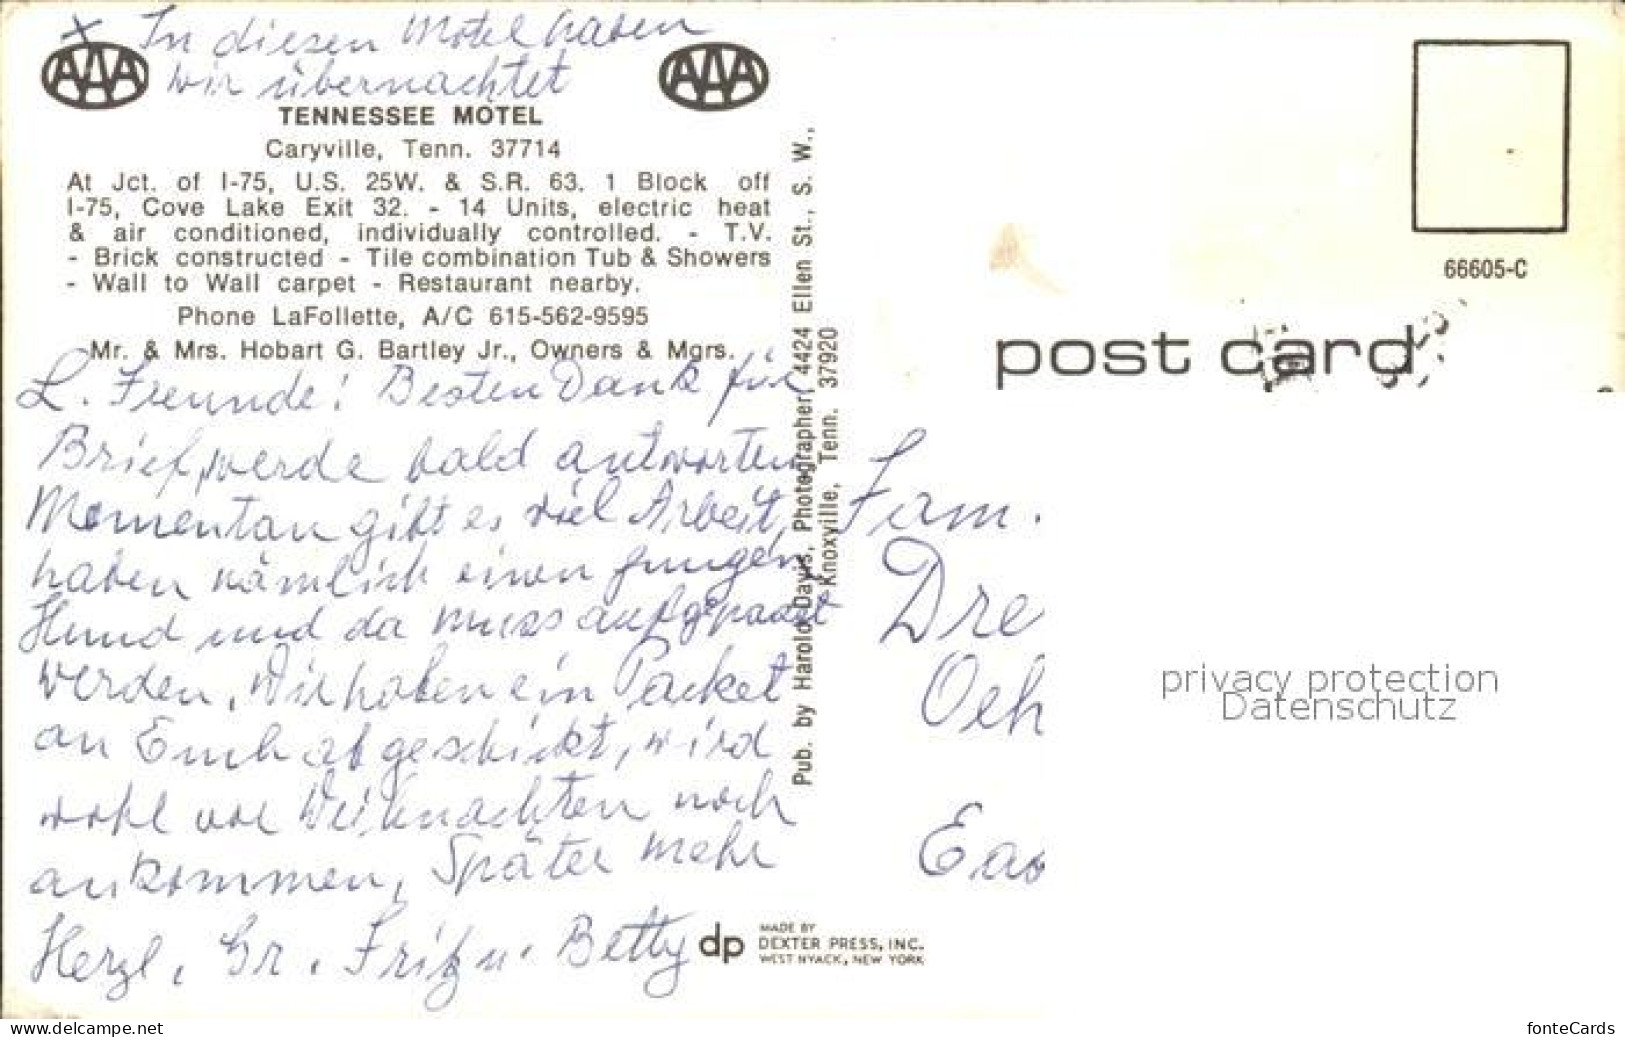 x In diesen Motel haben
wir übernachtet
AAA AAA
TENNESSEE MOTEL
Caryville, Tenn. 37714
At Jct. of I-75, U.S. 25W. & S.R. 63. 1 Block off
I-75, Cove Lake Exit 32. - 14 Units, electric heat
& air conditioned, individually controlled. - T.V.
- Brick constructed - Tile combination Tub & Showers
- Wall to Wall carpet - Restaurant nearby.
Phone LaFollette, A/C 615-562-9595
Mr. & Mrs. Hobart G. Bartley Jr., Owners & Mgrs.
L. Freunde! Besten Dank für
Brief, werde bald antworten
Momentan gibt es viel Arbeit,
haben nämlich einen jungen
Hund und da muss aufgepasst
werden, Wir haben ein Packet
an Euch abgeschickt, wird
wohl vor Weihnachten noch
ankommen, Später mehr
Herzl. Gr. Fritz u. Betty
Pub. by Harold Davis, Photographer, 4424 Ellen St., S. W.,
Knoxville, Tenn. 37920
dp MADE BY
DEXTER PRESS, INC.
WEST NYACK, NEW YORK
66605-C
post card
Fam.
Dre
Oeh
Eas
privacy protection
Datenschutz
www.delcampe.net
fonteCards